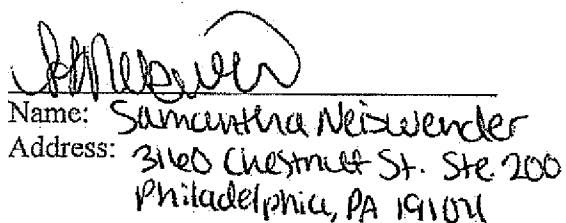 Name: Samantha Neiswender
Address: 3160 Chestnut St. Ste. 200
Philadelphia, PA 19104